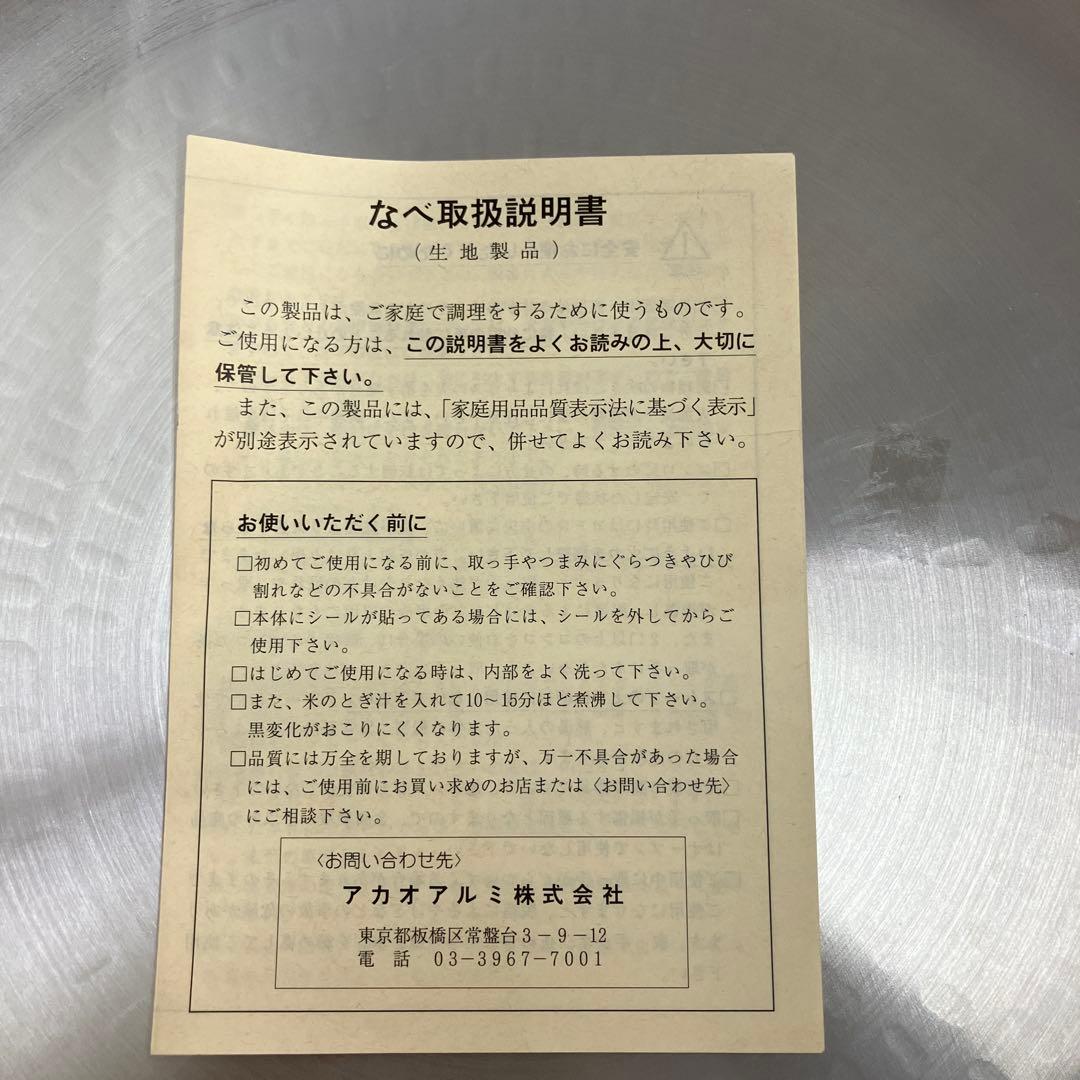 なべ取扱説明書
(生地製品)
この製品は、ご家庭で調理をするために使うものです。
ご使用になる方は、この説明書をよくお読みの上、大切に
保管して下さい。
また、この製品には、「家庭用品品質表示法に基づく表示」
が別途表示されていますので、併せてよくお読み下さい。
お使いいただく前に
□初めてご使用になる前に、取っ手やつまみにぐらつきやひび
割れなどの不具合がないことをご確認下さい。
□本体にシールが貼ってある場合には、シールを外してからご
使用下さい。
□はじめてご使用になる時は、内部をよく洗って下さい。
□また、米のとぎ汁を入れて10〜15分ほど煮沸して下さい。
黒変化がおこりにくくなります。
□品質には万全を期しておりますが、万一不具合があった場合
には、ご使用前にお買い求めのお店または〈お問い合わせ先〉
にご相談下さい。
〈お問い合わせ先〉
アカオアルミ株式会社
東京都板橋区常盤台3-9-12
電話 03-3967-7001